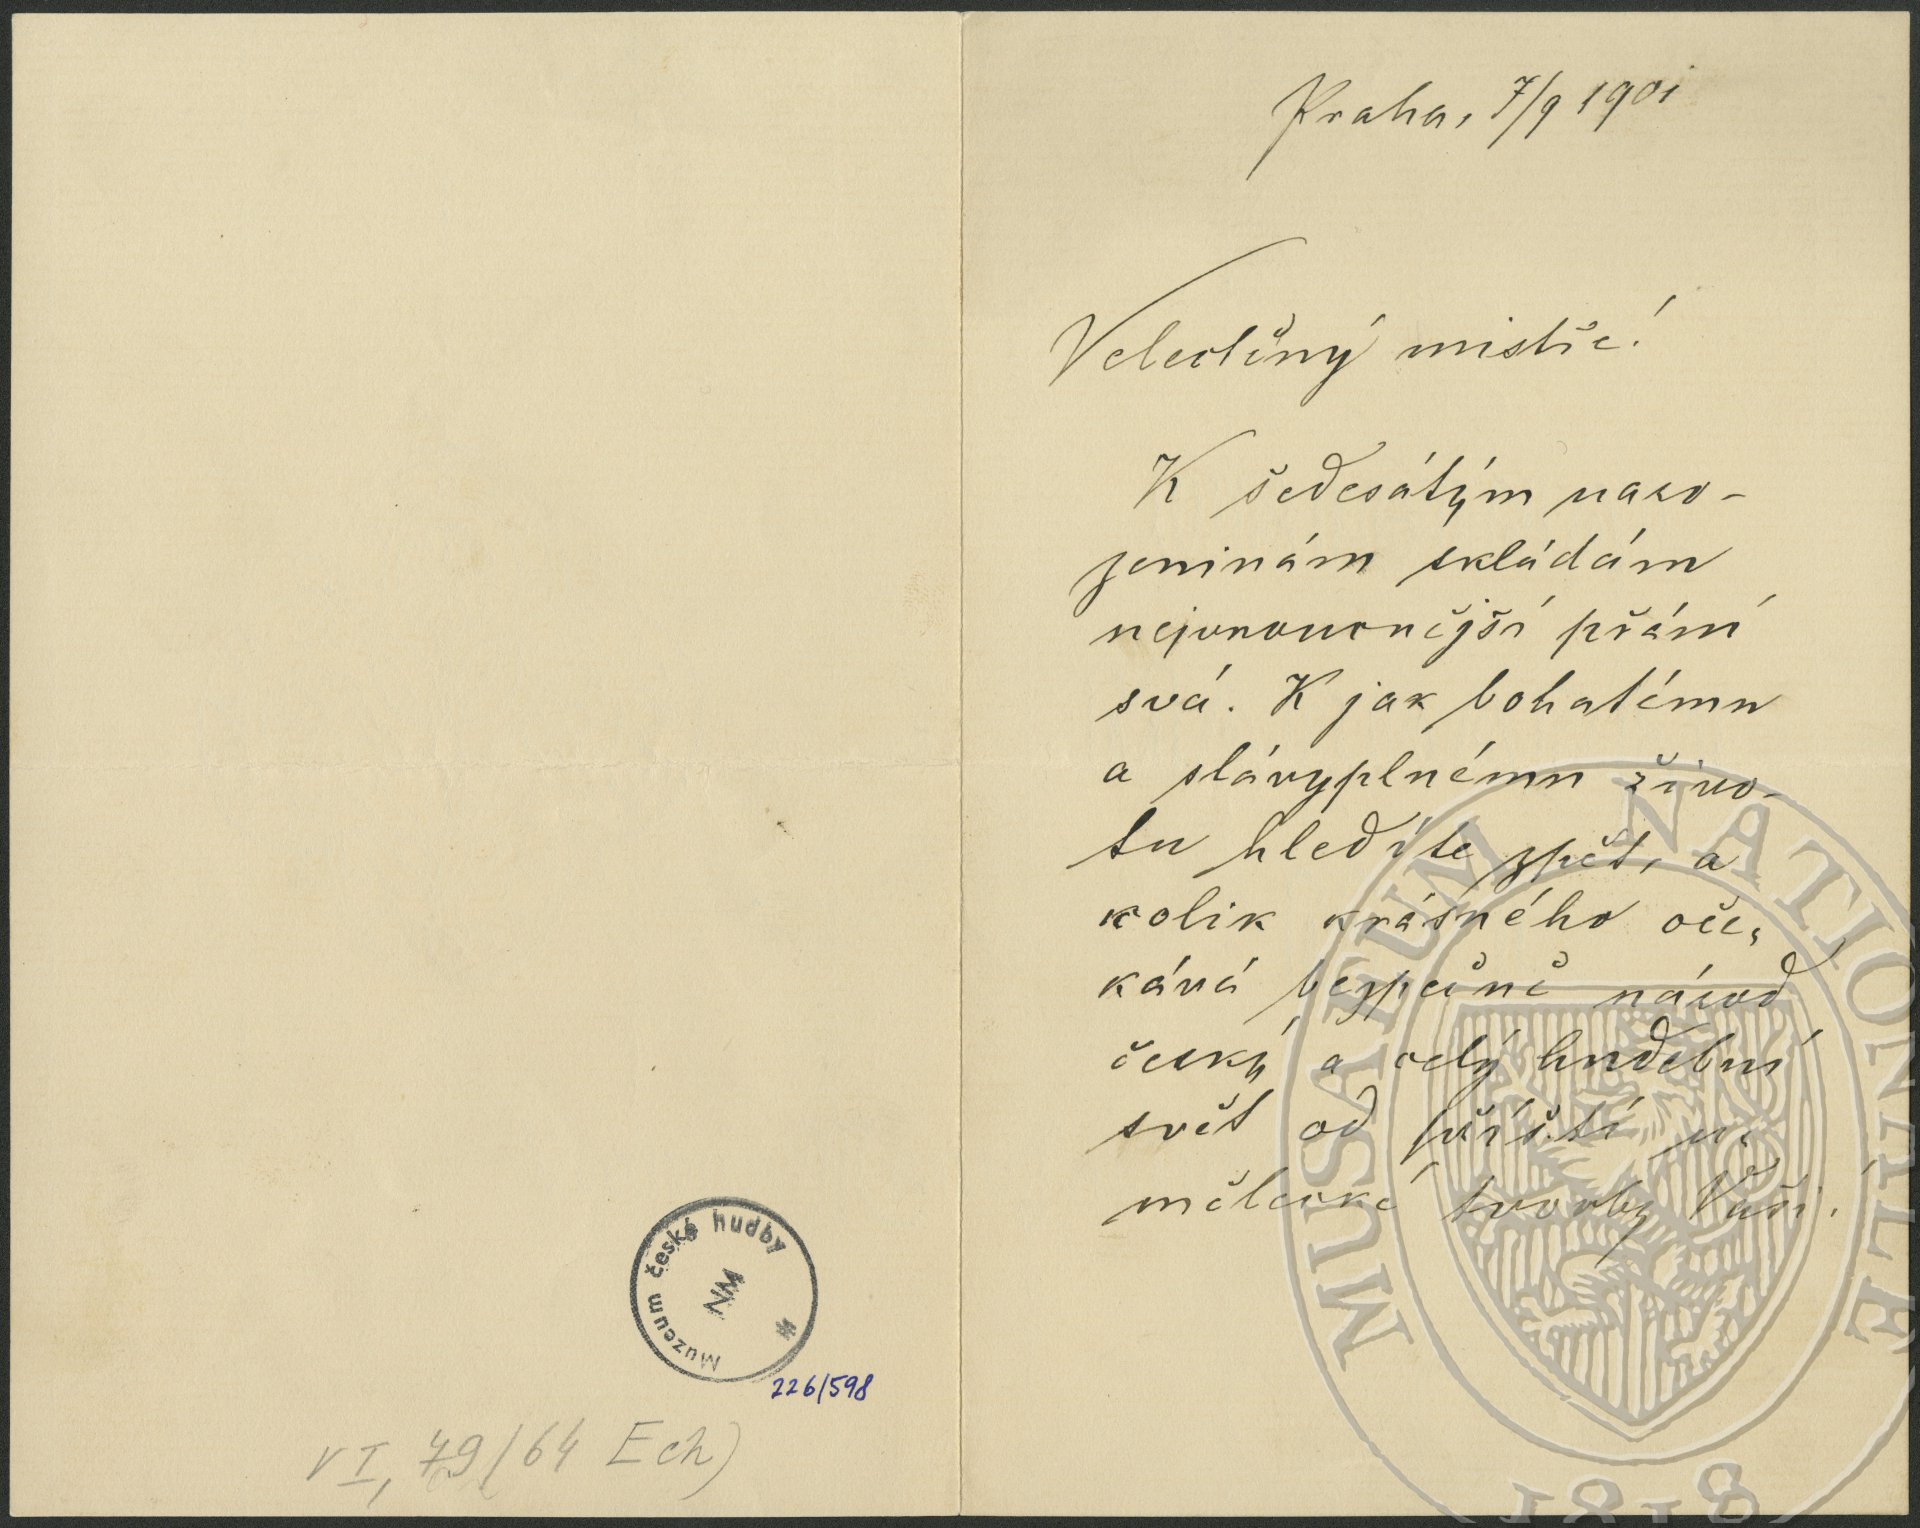 Muzeum české hudby
NM
226/598
VI, 79/64 Ech)
Praha, 7/9 1901
Velectěný mistře!
K šedesátým naro-
zeninám skládám
nejvroucnější přání
svá. K jak bohatému
a slávyplnému živo-
tu hledíte zpět, a
kolik krásného oče,
kává bezpečně národ
český a celý hudební
svět od příští u,
mělecké tvorby Vaší.
MUSAEUM NATIONALE
1818